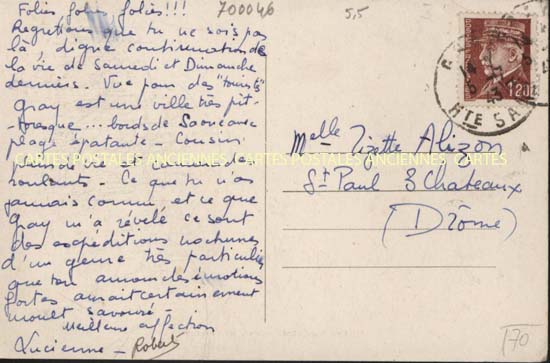 Folies folies folies!!!
Regrettons que tu ne sois pas
là, digne continuation de
la vie de Samedi et Dimanche
derniers. Vue par des "touristes"
Gray est une ville très pit-
-toresque... bords de Saone avec
plage épatante - Cousin
de
roulants. Ce que tu n'as
jamais connu et ce que
Gray m'a révélé ce sont
des expéditions nocturnes
d'un genre très particulier
que ton amour des émotions
fortes aurait certainement
moult savouré -
Meilleure affection
Lucienne - Robert
700046
5,5
1,20
HTE SA
Melle Lizette Alizon
St Paul 3 Chateaux
(Drôme)
170
CARTES POSTALES ANCIENNES CARTES POSTALES ANCIENNES CARTES